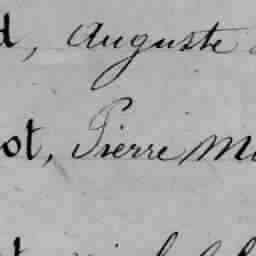 d, Auguste
ot, Pierre M